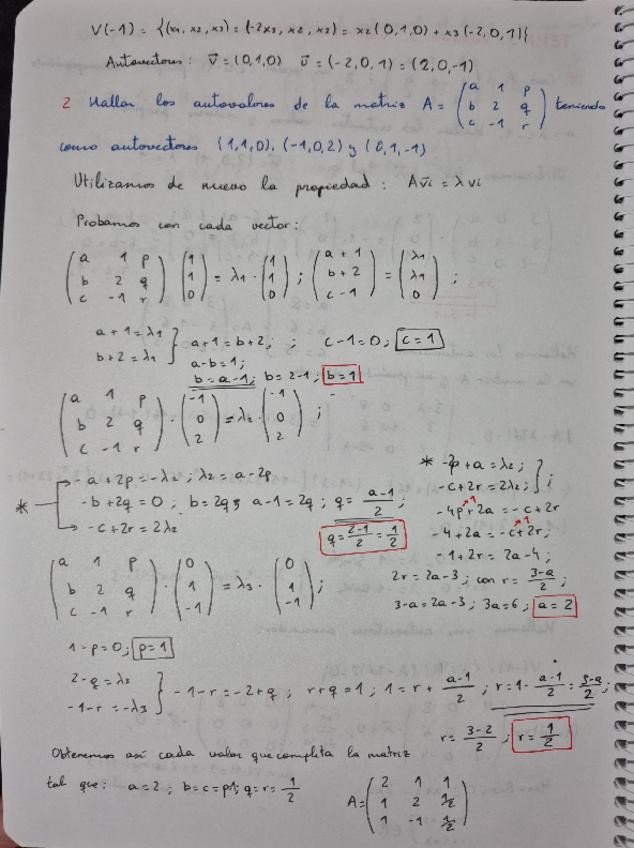 V(-1) = {(x1, x2, x3) = (-2x3, x2, x3) = x2(0,1,0) + x3(-2,0,1)}
Autovectores: v⃗ = (0,1,0) u⃗ = (-2,0,1) = (2,0,-1)
2 Hallar los autovalores de la matriz A = (a 1 p; b 2 q; c -1 r) teniendo
como autovectores (1,1,0), (-1,0,2) y (0,1,-1)
Utilizamos de nuevo la propiedad: Av⃗i = λvi
Probamos con cada vector:
(a 1 p; b 2 q; c -1 r) · (1; 1; 0) = λ1 · (1; 1; 0) ; (a+1; b+2; c-1) = (λ1; λ1; 0) ;
a+1 = λ1
b+2 = λ1 } a+1 = b+2; ; c-1=0; c=1
a-b=1;
b=a-1; b=2-1; b=1
(a 1 p; b 2 q; c -1 r) · (-1; 0; 2) = λ2 · (-1; 0; 2) ;
* -a+2p = -λ2; λ2 = a-2p
-b+2q = 0; b=2q; a-1=2q; q = (a-1)/2
-c+2r = 2λ2
q = (2-1)/2 = 1/2
* -2p+a = λ2;
-c+2r = 2λ2; } ;
-4p+2a = -c+2r
-4+2a = -c+2r;
-1+2r = 2a-4;
2r = 2a-3; con r = (3-a)/2;
3-a = 2a-3; 3a=6; a=2
(a 1 p; b 2 q; c -1 r) · (0; 1; -1) = λ3 · (0; 1; -1) ;
1-p=0; p=1
2-q = λ3
-1-r = -λ3 } -1-r = -2+q; r+q=1; 1 = r + (a-1)/2; r = 1 - (a-1)/2 = (3-a)/2;
r = (3-2)/2; r = 1/2
Obtenemos así cada valor que completa la matriz
tal que: a=2; b=c=p=1; q=r= 1/2 A = (2 1 1; 1 2 1/2; 1 -1 1/2)